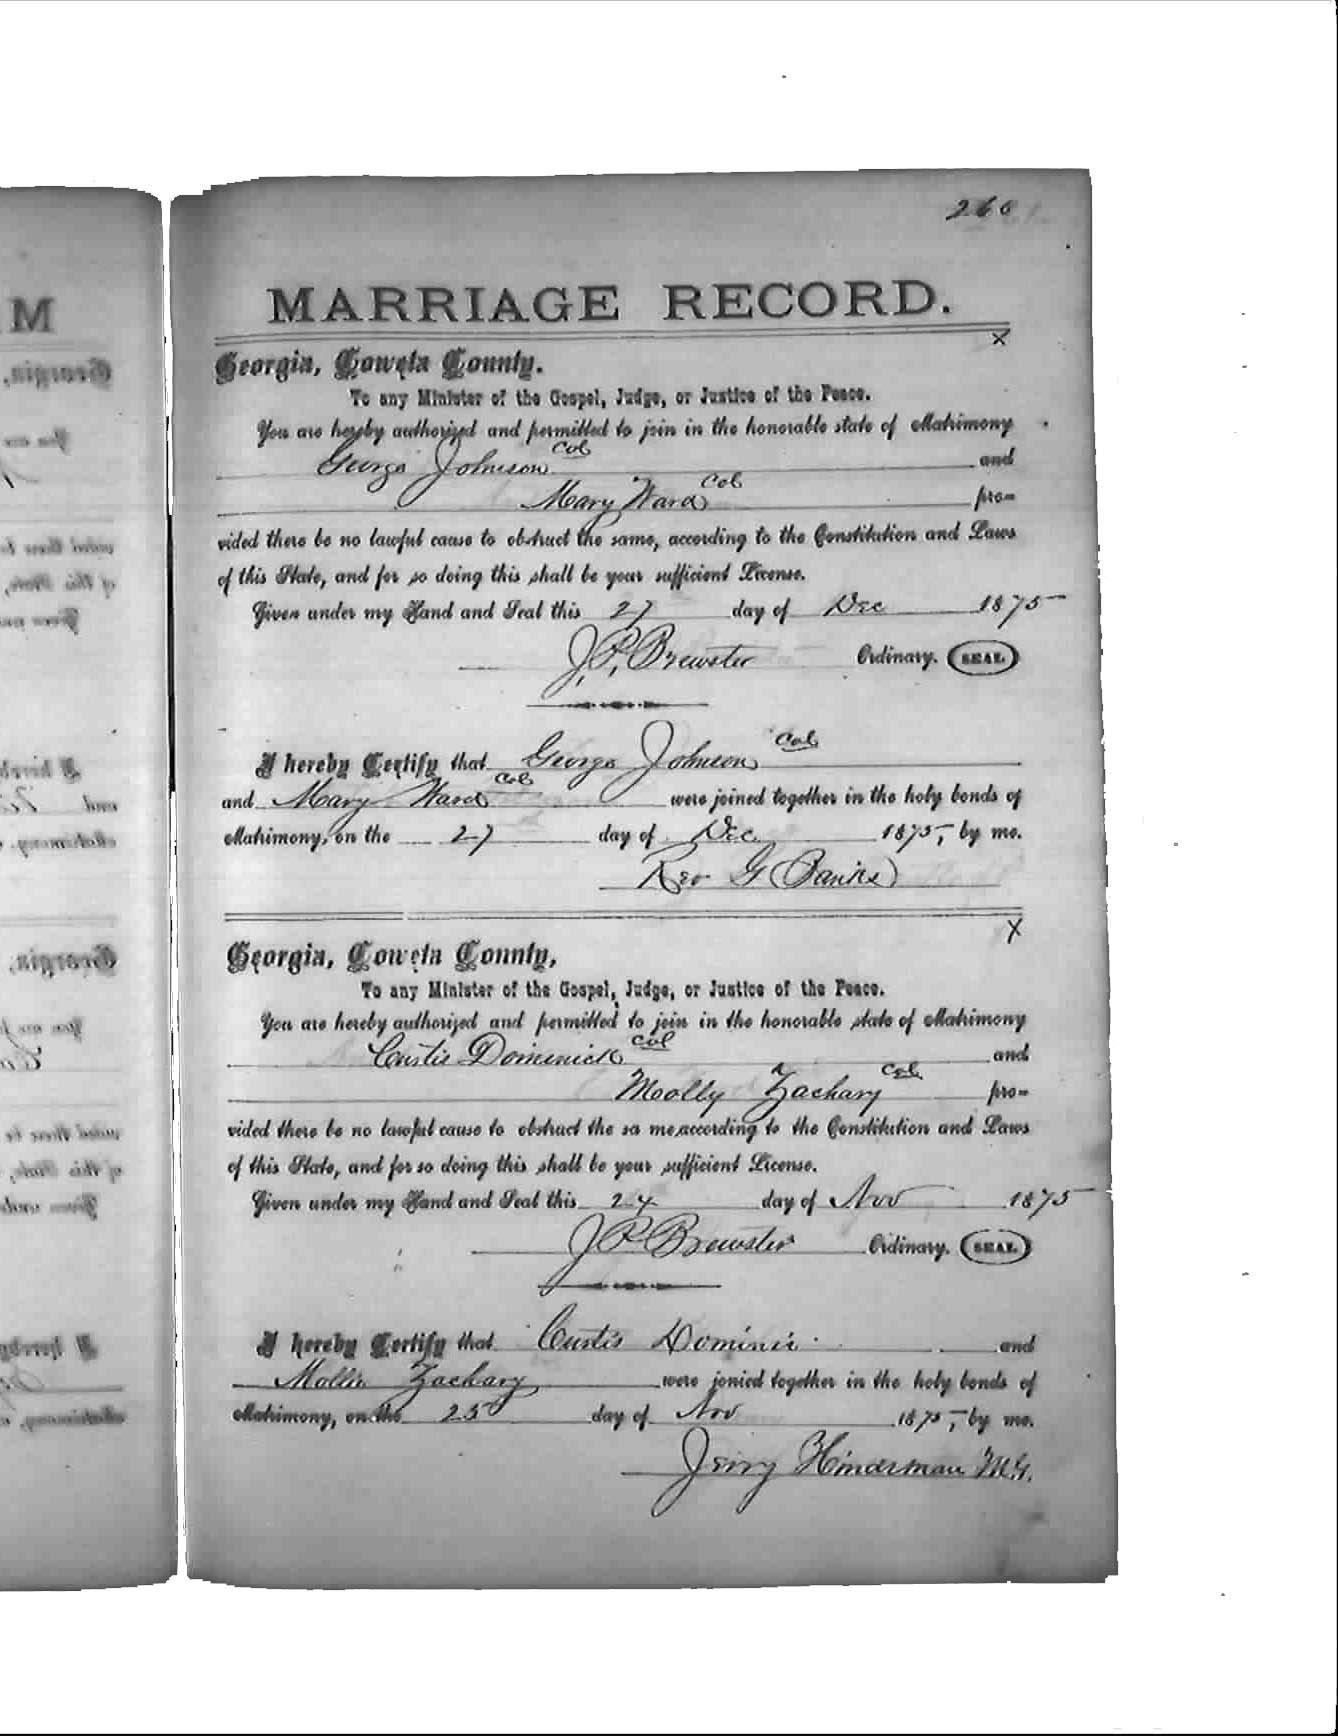 260
MARRIAGE RECORD.
X
Georgia, Coweta County.
To any Minister of the Gospel, Judge, or Justice of the Peace.
You are hereby authorized and permitted to join in the honorable state of Matrimony
George Johnson Col and
Mary Ward Col pro-
vided there be no lawful cause to obstruct the same, according to the Constitution and Laws
of this State, and for so doing this shall be your sufficient License.
Given under my Hand and Seal this 27 day of Dec 1875
J. P. Brewster Ordinary. SEAL
I hereby Certify that George Johnson Col
and Mary Ward Col were joined together in the holy bonds of
Matrimony, on the 27 day of Dec 1875, by me.
Rev G Banks
X
Georgia, Coweta County,
To any Minister of the Gospel, Judge, or Justice of the Peace.
You are hereby authorized and permitted to join in the honorable state of Matrimony
Curtis Dominick Col and
Moolly Zachary Col pro-
vided there be no lawful cause to obstruct the sa me,according to the Constitution and Laws
of this State, and for so doing this shall be your sufficient License.
Given under my Hand and Seal this 24 day of Nov 1875
J P Brewster Ordinary. SEAL
I hereby Certify that Curtis Dominic and
Mollie Zachary were jonied together in the holy bonds of
Matrimony, on the 25 day of Nov 1875, by me.
Jerry Hinderman M.G.